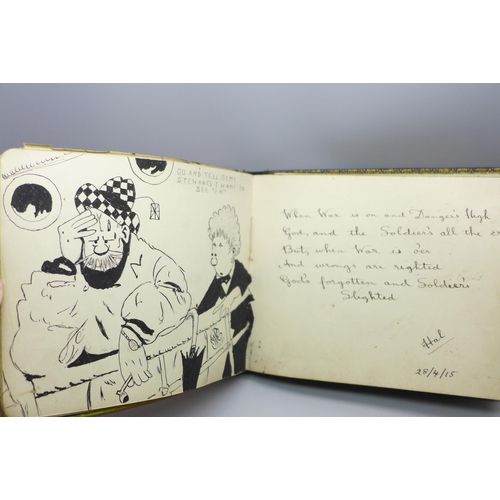 GO AND TELL SOME
STEWARDS I WANT TO
SEE "'IM"
When War is on and Danger's High
God, and the Soldier's all the
But, when War is o'er
And wrongs are righted
God's forgotten and Soldier's
Slighted
Hal
28/4/15